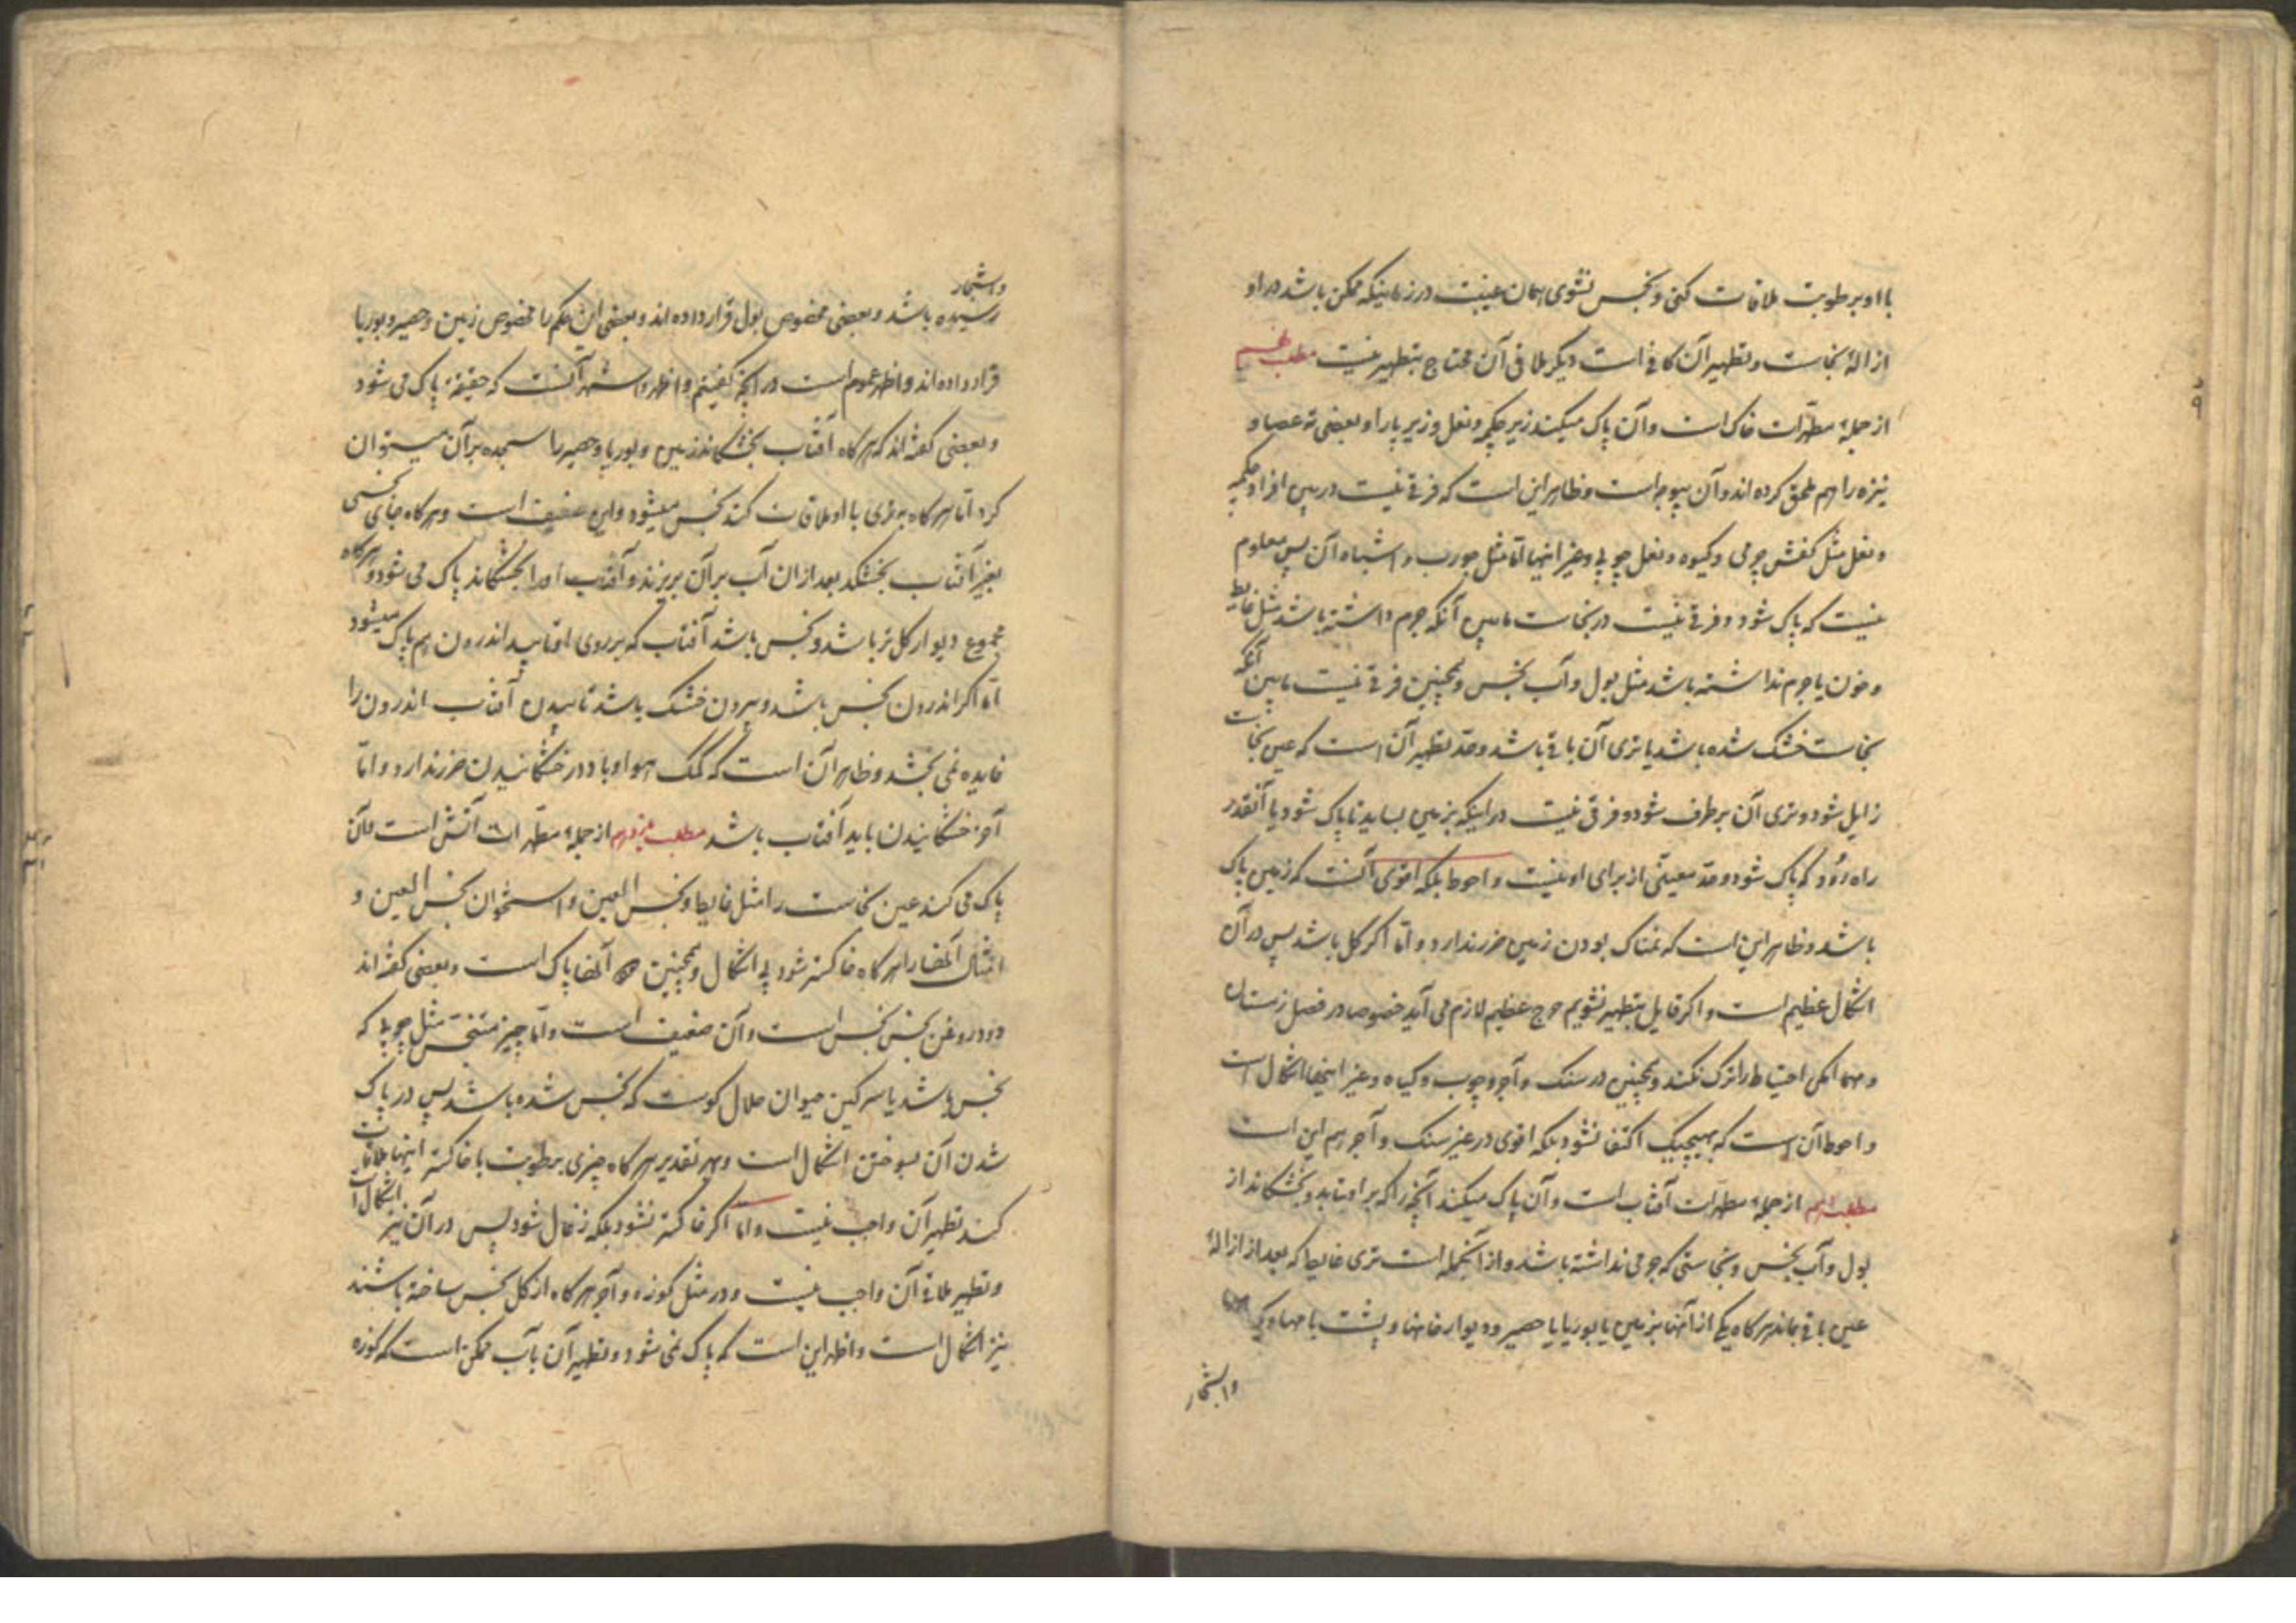 با او برطوبت ملاقات کنی و نجس نشوی همان عینیت در زمانیکه ممکن باشد در او
ازالهٔ نجاست و تطهیر آن کافی است دیگر ملاقی آن محتاج بتطهیر نیست مطلب نهم
از جملهٔ مطهّرات خاک است و آن پاک میکند زیر چکمه و نعل و زیر پا را و بعضی ته عصا و
نیزه را هم ملحق کرده‌اند و آن بیوجه است و ظاهر این است که فرقی نیست در بین افراد چکمه
و نعل مثل کفش چرمی و گیوه و نعل چوبی و غیر اینها امّا مثل جورب و اشباه آن پس معلوم
نیست که پاک شود و فرقی نیست در نجاست مابین آنکه جرم داشته باشد مثل غایط
و خون یا جرم نداشته باشد مثل بول و آب نجس و همچنین فرقی نیست مابین آنکه
نجاست خشک شده باشد یا تری آن باقی باشد و حدّ تطهیر آن است که عین نجاست
زایل شود و تری آن برطرف شود و فرقی نیست در اینکه بزمین بساید تا پاک شود یا آنقدر
راه رود که پاک شود و حدّ معیّنی از برای او نیست و احوط بلکه اقوی آنست که زمین پاک
باشد و ظاهر این است که نمناک بودن زمین ضرر ندارد و امّا اگر گل باشد پس در آن
اشکال عظیم است و اگر قایل بتطهیر نشویم حرج عظیم لازم می آید خصوصا در فصل زمستان
و مهما امکن احتیاط را ترک نکند و همچنین در سنک و آجر و چوب و گیاه و غیر اینها اشکال است
و احوط آن است که بهیچیک اکتفا نشود بلکه اقوی در غیر سنک و آجر هم این است
مطلب دهم از جملهٔ مطهّرات آفتاب است و آن پاک میکند آنچه را که بر او بتابد و بخشکاند از
بول و آب نجس و نجاستی که جرمی نداشته باشد و از آنجمله است تری غایط که بعد از ازالهٔ
عین باقی بماند هرگاه یکی از آنها بزمین یا بوریا یا حصیر و دیوار خانها و پشت بامها و
واشجار
واشجار
رسیده باشد و بعضی مخصوص بول قرار داده‌اند و بعضی این حکم را مخصوص زمین و حصیر و بوریا
قرار داده‌اند و اظهر عموم است در آنچه گفتیم و اظهر و اشهر آنست که حقیقة پاک می شود
و بعضی گفته‌اند که هرگاه آفتاب بخشکاند زمین و بوریا و حصیر را سجده بر آن میتوان
کرد امّا هرگاه بتری با او ملاقات کند نجس میشود و این ضعیف است و هرگاه جای نجسی
بغیر آفتاب بخشکد بعد از ان آب بر آن بریزند و آفتاب او را بخشکاند پاک می شود و هرگاه
مجموع دیوار گل تر باشد و نجس باشد آفتاب که بر روی او تابید اندرون هم پاک میشود
امّا اگر اندرون نجس باشد و بیرون خشک باشد تابیدن آفتاب اندرون را
فایده نمی بخشد و ظاهر آن است که کمک هوا و باد در خشکانیدن ضرر ندارد و امّا
آخر خشکانیدن باید آفتاب باشد مطلب یازدهم از جملهٔ مطهّرات آتش است و آن
پاک می کند عین نجاست را مثل غایط و نجس العین و استخوان نجس العین و
امثال آنها را هرگاه خاکستر شود بی اشکال و همچنین آنها پاک است و بعضی گفته‌اند
دود روغن نجس نجس است و آن ضعیف است و امّا چیز متنجّس مثل چوبی که
نجس باشد یا سرگین حیوان حلال گوشت که نجس شده باشد پس در پاک
شدن آن بسوختن اشکال است و بهر تقدیر هرگاه چیزی برطوبت با خاکستر اینها ملاقات
کند تطهیر آن واجب نیست و امّا اگر خاکستر نشود بلکه زغال شود پس در آن نیز اشکال است
و تطهیر ملاقی آن واجب نیست و در مثل کوزه و آجر هرگاه از گل نجس ساخته باشند
نیز اشکال است و اظهر این است که پاک نمی شود و تطهیر آن بآب ممکن است که کوزه